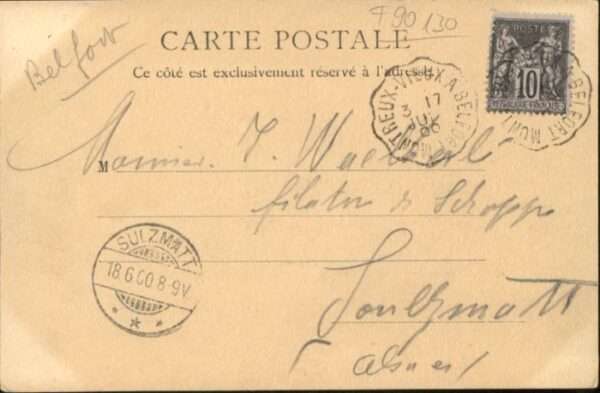 Belfort
F90 130
CARTE POSTALE
Ce côté est exclusivement réservé à l'adresse.
POSTE
10
REPUBLIQUE FRANÇAISE
MONTREUX-VIEUX A BELFORT
3
17
JUIN
A BELFORT MONT
M
Monsieur J.
filature de Schoppe
SULZMATT
18.6.00.8-9V
Soultzmatt
Alsace